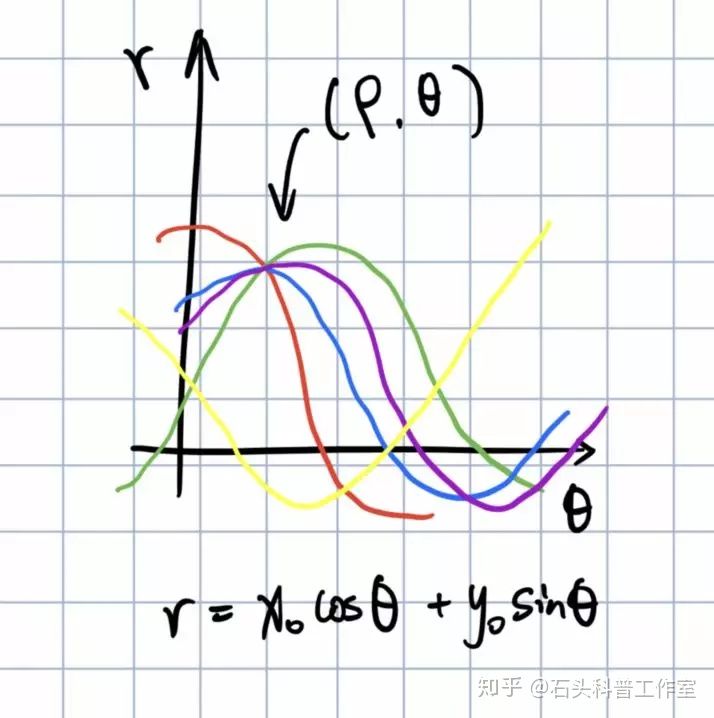 r
(ρ.θ)
θ
r = x₀ cosθ + y₀ sinθ
知乎 @石头科普工作室